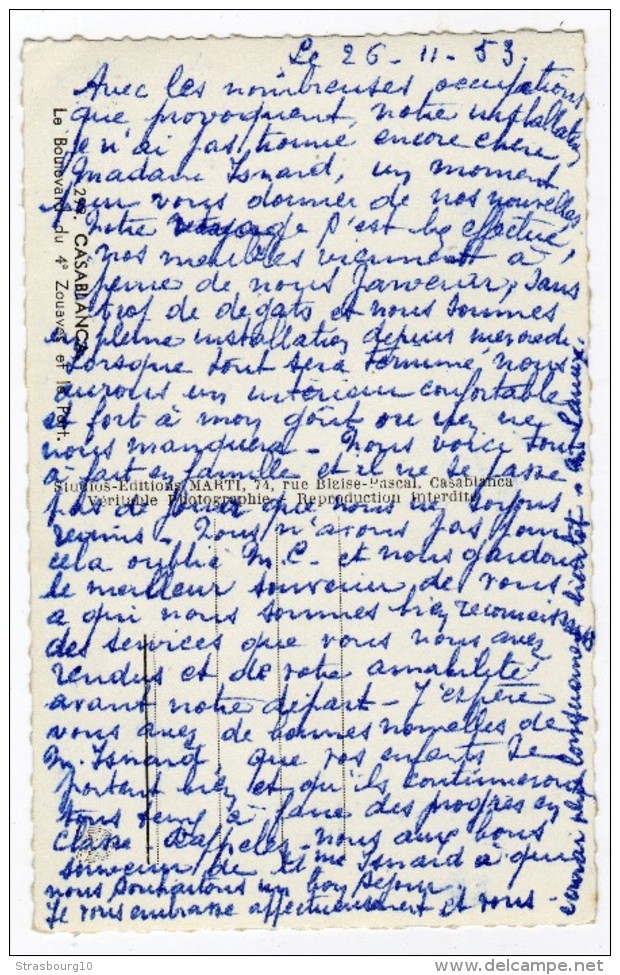 Le 26-11-53
Avec les nombreuses occupations
que provoquent notre installation
je n'ai pas trouvé encore chère
Madame Isnard, un moment
pour vous donner de nos nouvelles
Notre voyage s'est bien effectué,
nos meubles viennent à
peine de nous parvenir, sans
trop de dégats et nous sommes
en pleine installation depuis mercredi
Lorsque tout sera terminé, nous
aurons un intérieur confortable
et fort à mon goût où rien ne
nous manquera - Nous voici tout
à fait en famille et il ne se passe
pas de jour que nous ne soyons
réunis - Nous n'avons pas pour
cela oublié M.C. et nous gardons
le meilleur souvenir de vous
a qui nous sommes bien reconnaissants
des services que vous nous avez
rendus et de votre amabilité
avant notre départ - J'espère
vous avez de bonnes nouvelles de
M. Isnard, que vos enfants se
portent bien et qu'ils continueront
tous deux à faire des progrès en
classe - Rappelez-nous aux bons
souvenir de Mme Isnard à qui
nous souhaitons un bon séjour
Je vous embrasse affectueusement et vous -
écrirai plus longuement bientôt -
298. CASABLANCA
Le Boulevard du 4e Zouaves et le Port.
Studios-Editions MARTI, 74, rue Blaise-Pascal, Casablanca
Véritable Photographie - Reproduction Interdite
Strasbourg10
www.delcampe.net